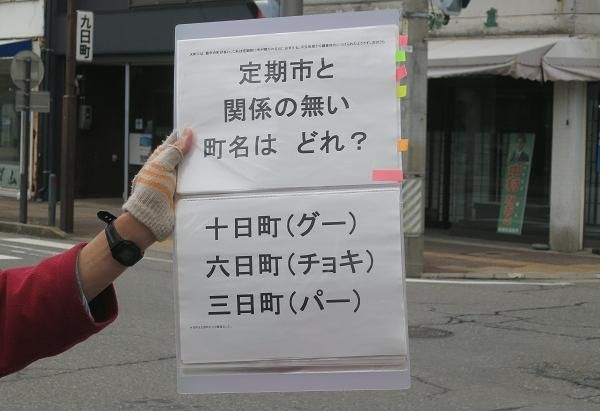 九日町
定期市と
関係の無い
町名は どれ？
十日町(グー)
六日町(チョキ)
三日町(パー)